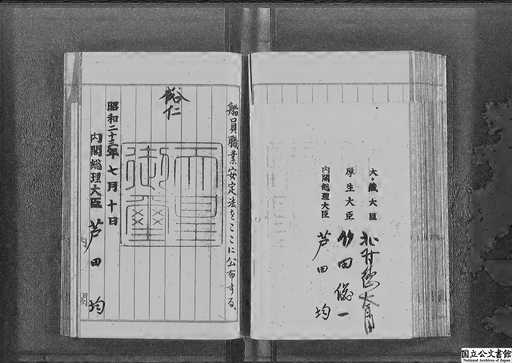 大蔵大臣 北村徳太郎
厚生大臣 竹田儀一
内閣総理大臣 芦田均
船員職業安定法をここに公布する。
裕仁
天皇御璽
昭和二十三年七月十日
内閣総理大臣 芦田均
内閣
国立公文書館
National Archives of Japan